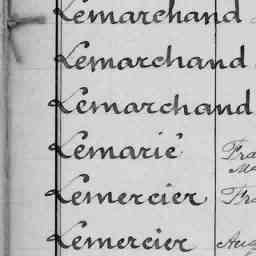 Lemarchand
Lemarchand
Lemarchand
Lemarié Fra
Lemercier Fra
Lemercier Aug